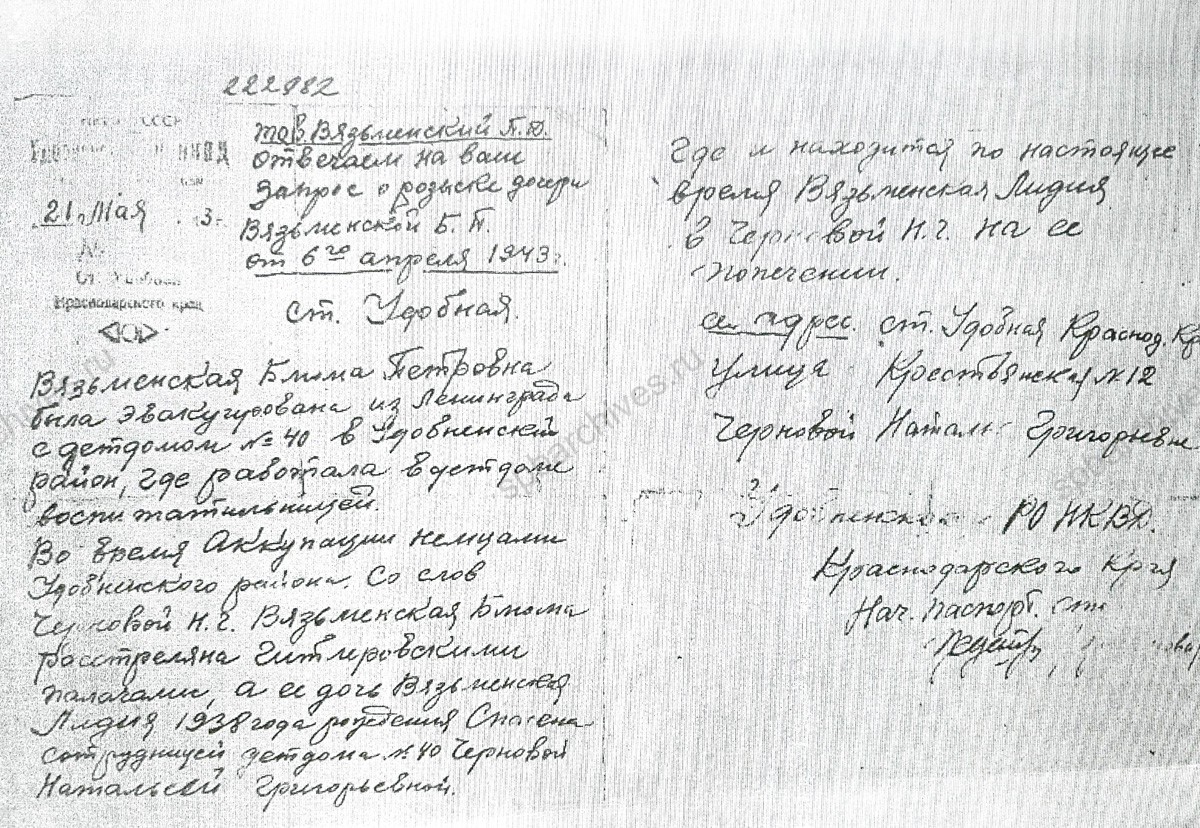 222982
СССР
НКВД
21 Мая 3 г.
№
ст.
Краснодарского края
тов. Вязьменский П.Д.
отвечаем на ваш
запрос о розыске дочери
Вязьменской Б.П.
от 6го апреля 1943 г.
ст. Удобная.
Вязьменская Блюма Петровна
была эвакуирована из Ленинграда
с детдомом № 40 в Удобненский
район, где работала в детдоме
воспитательницей.
Во время Аккупации немцами
Удобненского района. Со слов
Черновой Н.Г. Вязьменская Блюма
расстреляна Гитлеровскими
палачами, а ее дочь Вязьменская
Лидия 1938 года рождения Спасена
сотрудницей детдома № 40 Черновой
Натальей Григорьевной.
Где и находится по настоящее
время Вязьменская Лидия
в Черновой Н.Г. на ее
попечении.
ее адрес. ст. Удобная Краснод. Кр
улица Крестьянская № 12
Черновой Наталье Григорьевне
Удобненского РО НКВД.
Краснодарского Края
Нач. паспорт.
spbarchives.ru